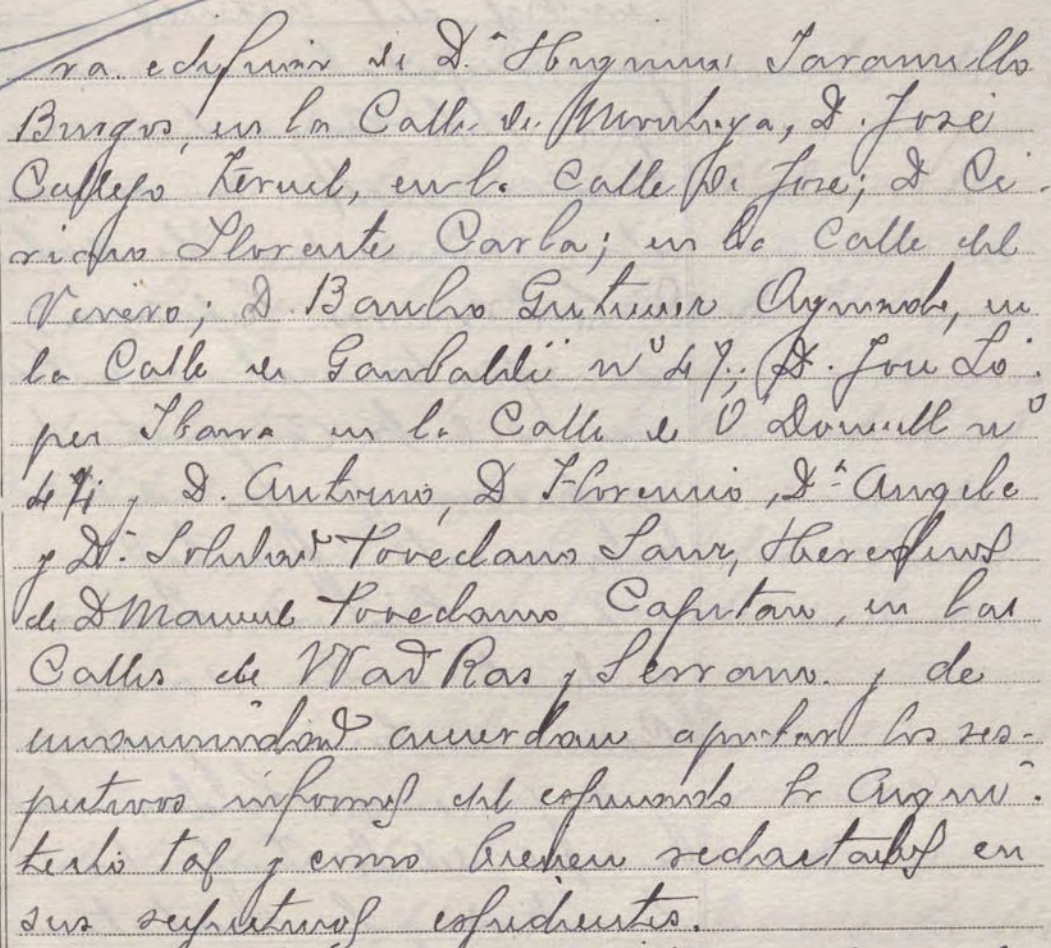 ra edificar de D.ª Higinia Jaramillo
Burgos, en la Calle de Montoya, D. José
Callejo Teruel, en la Calle de José; D Ci-
riaco Llorente Carla; en la Calle del
Vivero; D. Basilio Gutierrez en
la Calle de Garibaldi nº 47; D. José Ló-
pez Ibarra en la Calle de O'Donnell nº
47; y D. Antonio, D Florencio, D.ª Angela
y D.ª Soledad Tovedano Sanz, Herederos
de D Manuel Tovedano Capitan, en las
Calles de Wad Ras y Serrano. y de
unanimidad acuerdan aprobar los res-
pectivos informes del espresado Sr Arqui-
tecto tal y como vienen redactados en
sus respectivos espedientes.